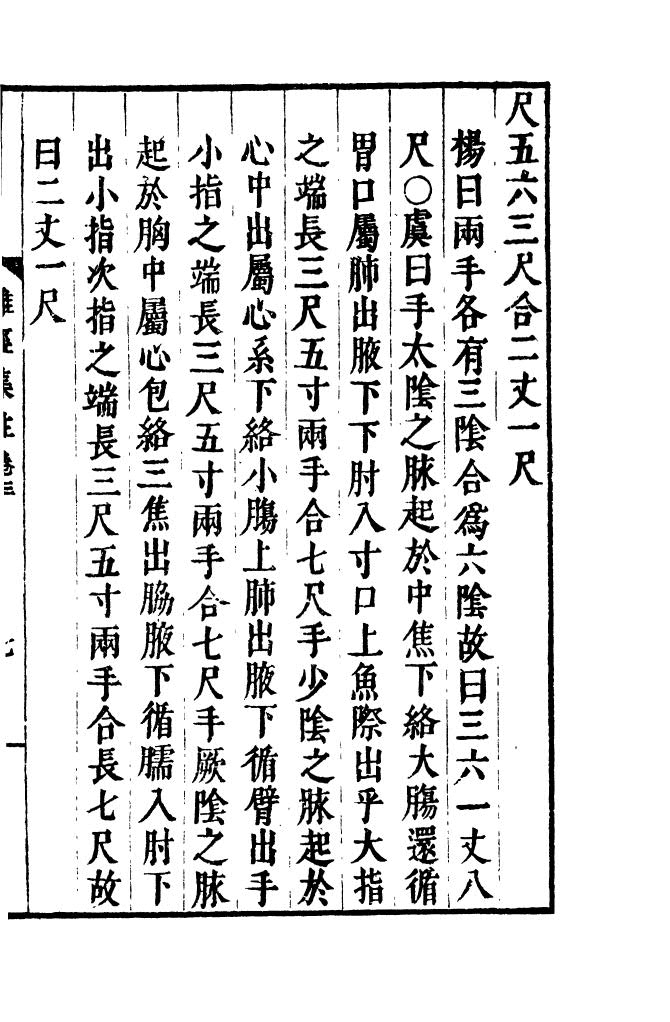 尺五六三尺合二丈一尺
楊曰兩手各有三陰合爲六陰故曰三六一丈八
尺○虞曰手太陰之脉起於中焦下絡大腸還循
胃口屬肺出腋下下肘入寸口上魚際出乎大指
之端長三尺五寸兩手合七尺手少陰之脉起於
心中出屬心系下絡小腸上肺出腋下循臂出手
小指之端長三尺五寸兩手合七尺手厥陰之脉
起於胸中屬心包絡三焦出脇腋下循臑入肘下
出小指次指之端長三尺五寸兩手合長七尺故
曰二丈一尺
難經集註 卷三
七